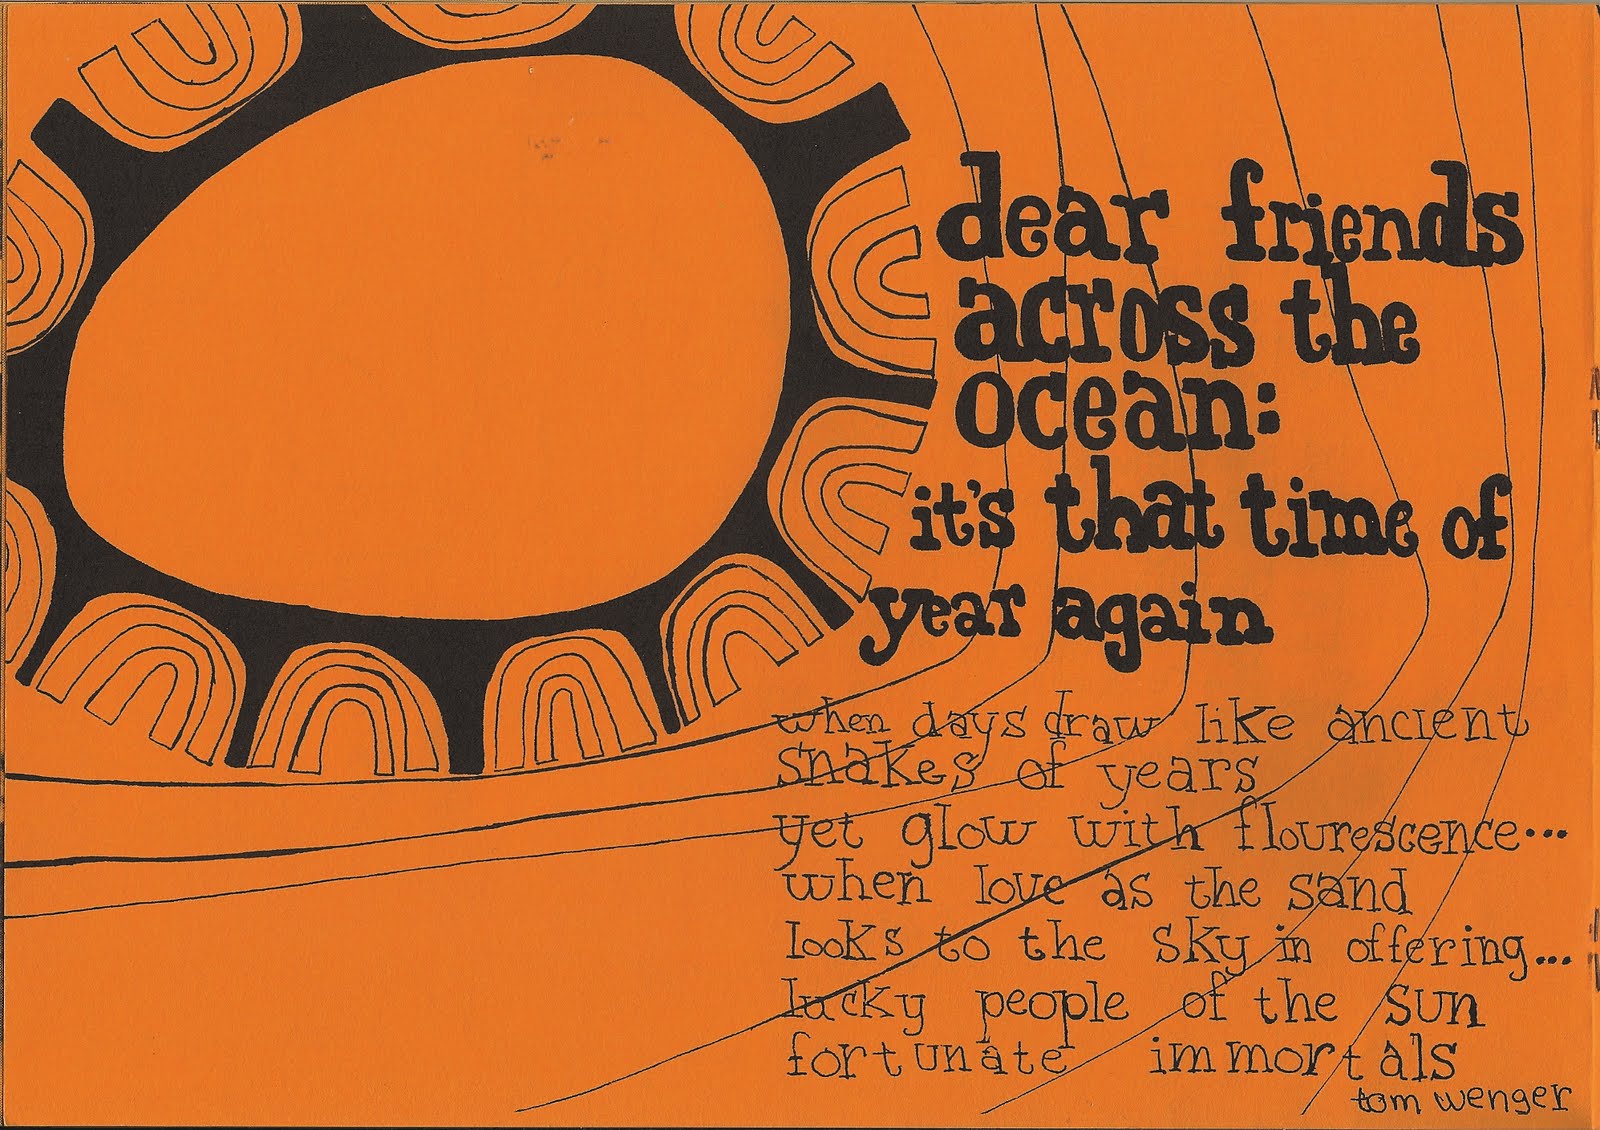 dear friends
across the
ocean:
it's that time of
year again
when days draw like ancient
snakes of years
yet glow with flourescence...
when love as the sand
looks to the sky in offering...
lucky people of the sun
fortunate immortals
tom wenger